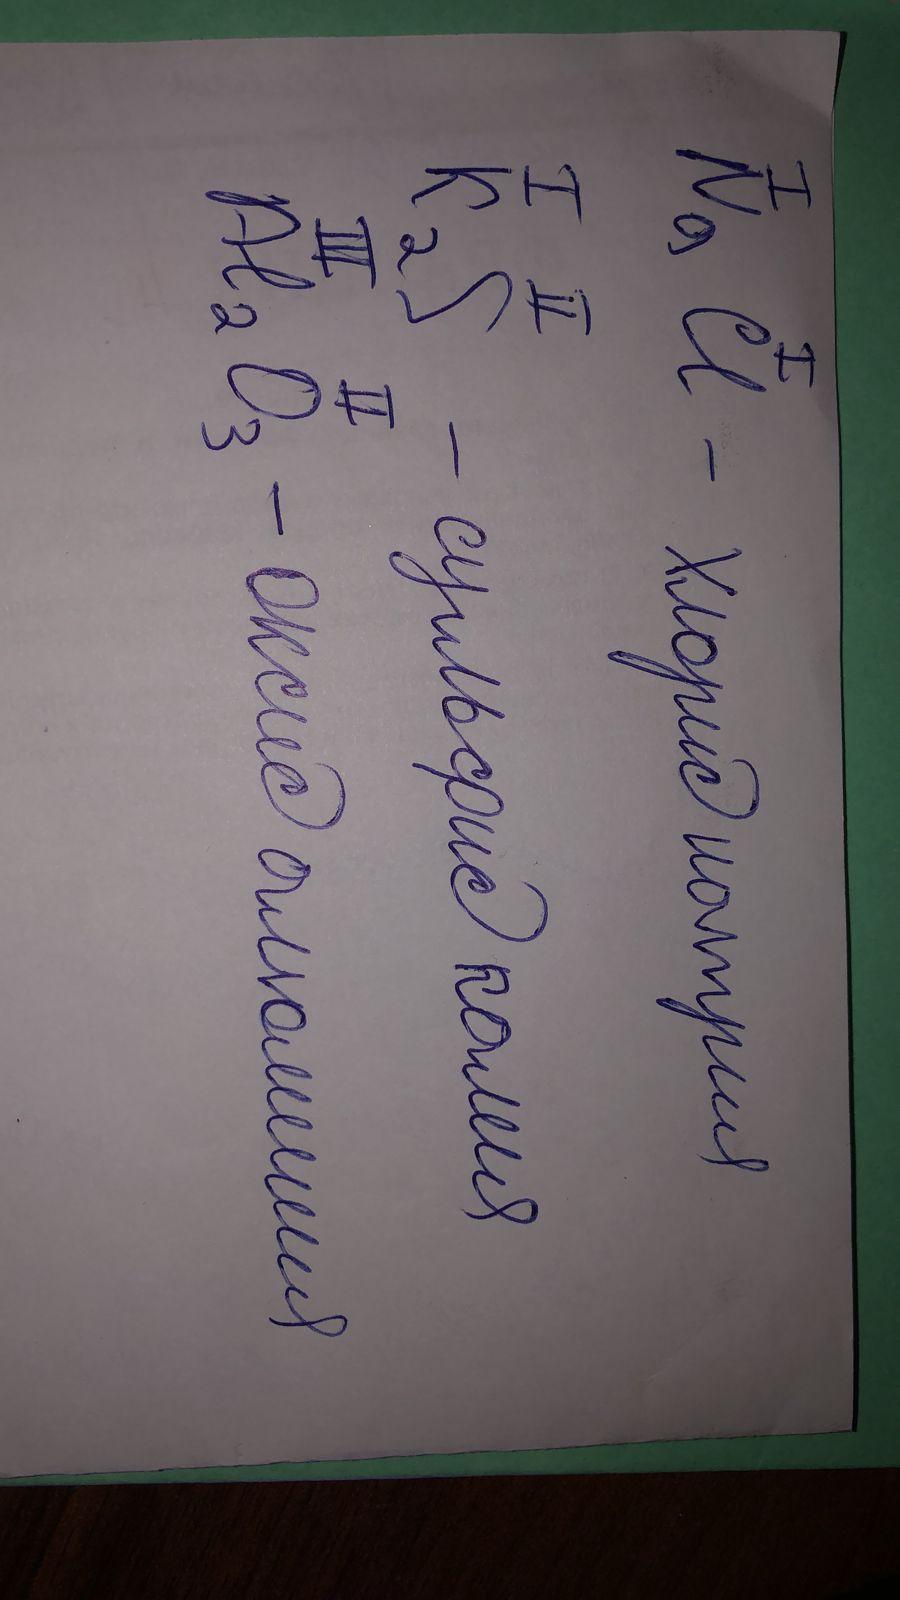 I I
Na Cl - хлорид натрия
I II
K₂S - сульфид калия
III II
Al₂O₃ - оксид алюминия